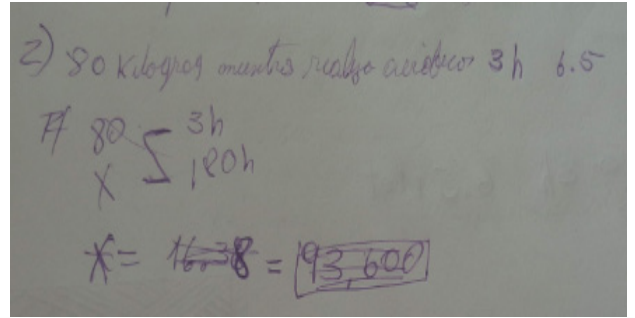 2) 80 Kilogros mientras realizo aeróbicos 3h 6.5
80 3h
X 180h
X = 16.38 = 93,600